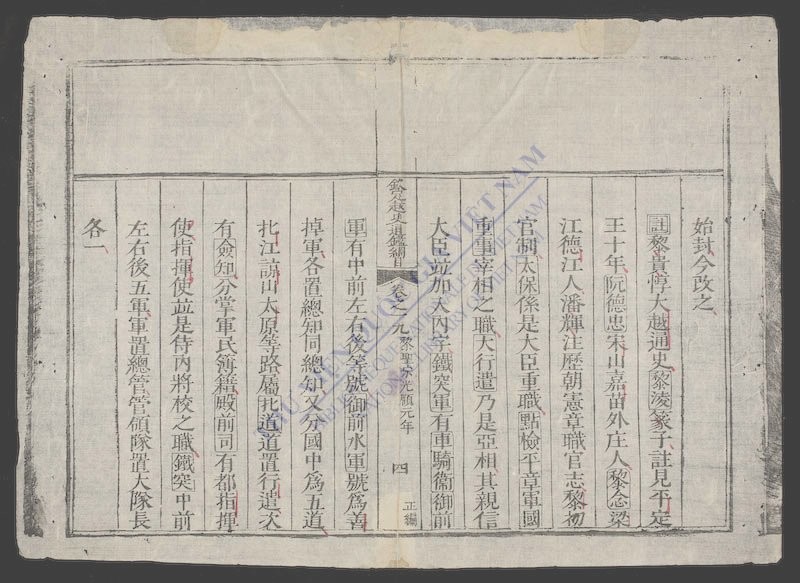 始封今改之
註黎貴惇大越通史黎淩篆子註見平定
王十年阮德忠宋山嘉苗外庄人黎念梁
江德江人潘輝注歷朝憲章職官志黎初
官制太保係是大臣重職點檢平章軍國
重事宰相之職大行遣乃是亞相其親信
大臣並加入內字鐵突軍有車騎衞御前
越史通鑑綱目 卷之九 黎聖宗光順元年 四 正編
軍有中前左右後等號御前水軍號爲善
掉軍各置總知同總知又分國中爲五道
北江諒山太原等路屬北道道置行遣次
有僉知分掌軍民簿籍殿前司有都指揮
使指揮使並是侍內將校之職鐵突中前
左右後五軍軍置總管管領隊置大隊長
各一
THƯ VIỆN QUỐC GIA VIỆT NAM
NATIONAL LIBRARY OF VIETNAM